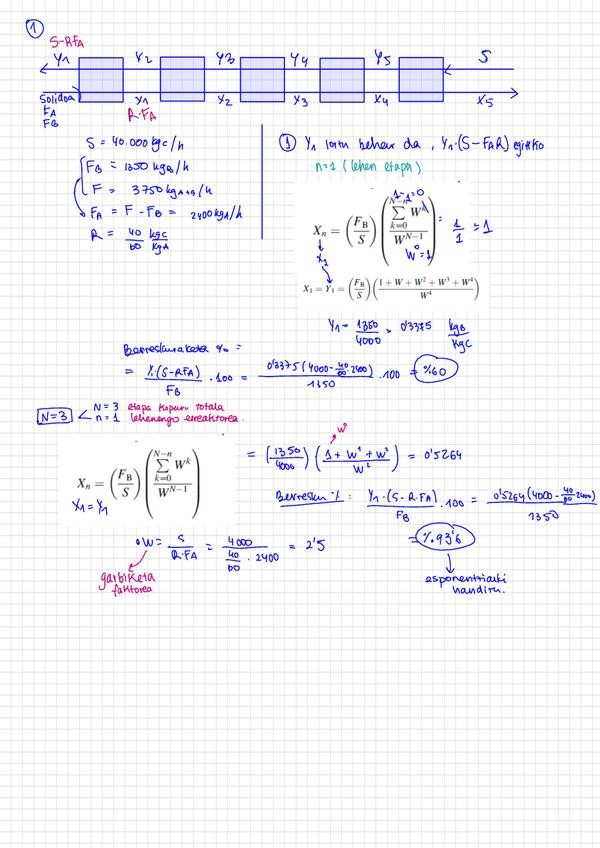 1
S-RFA
Y1 Y2 Y3 Y4 Y5 S
Solidoa
FA
FB
X1 X2 X3 X4 X5
R·FA
S = 40.000 kgC/h
FB = 1350 kgB/h
F = 3750 kgA+B/h
FA = F - FB = 2400 kgA/h
R = 40/60 kgC/kgA
1 Y1 lortu behar da, Y1·(S-FAR) egiteko
n=1 (lehen etapa)
1-1=0
Xn = (FB/S) (∑ k=0 N-n W^k / W^N-1) = 1/1 = 1
X1
W^0=1
X1 = Y1 = (FB/S) (1 + W + W² + W³ + W⁴ / W⁴)
Y1 = 1350/4000 = 0'3375 kgB/kgC
Berreskuraketa % =
= Y1·(S-RFA)/FB · 100 = 0'3375(4000-40/60·2400)/1350 · 100 = %60
N=3 N = 3 etapa kopuru totala
n = 1 lehenengo erreaktorea.
W^0
Xn = (FB/S) (∑ k=0 N-n W^k / W^N-1) = (1350/4000) (1 + W¹ + W² / W²) = 0'5264
X1 = Y1
Berresku %: Y1·(S-R·FA)/FB · 100 = 0'5264(4000-40/60·2400)/1350
= %93'6
• W = S/R·FA = 4000/(40/60 · 2400) = 2'5
garbiketa
faktorea
esponentzialki
handitu.